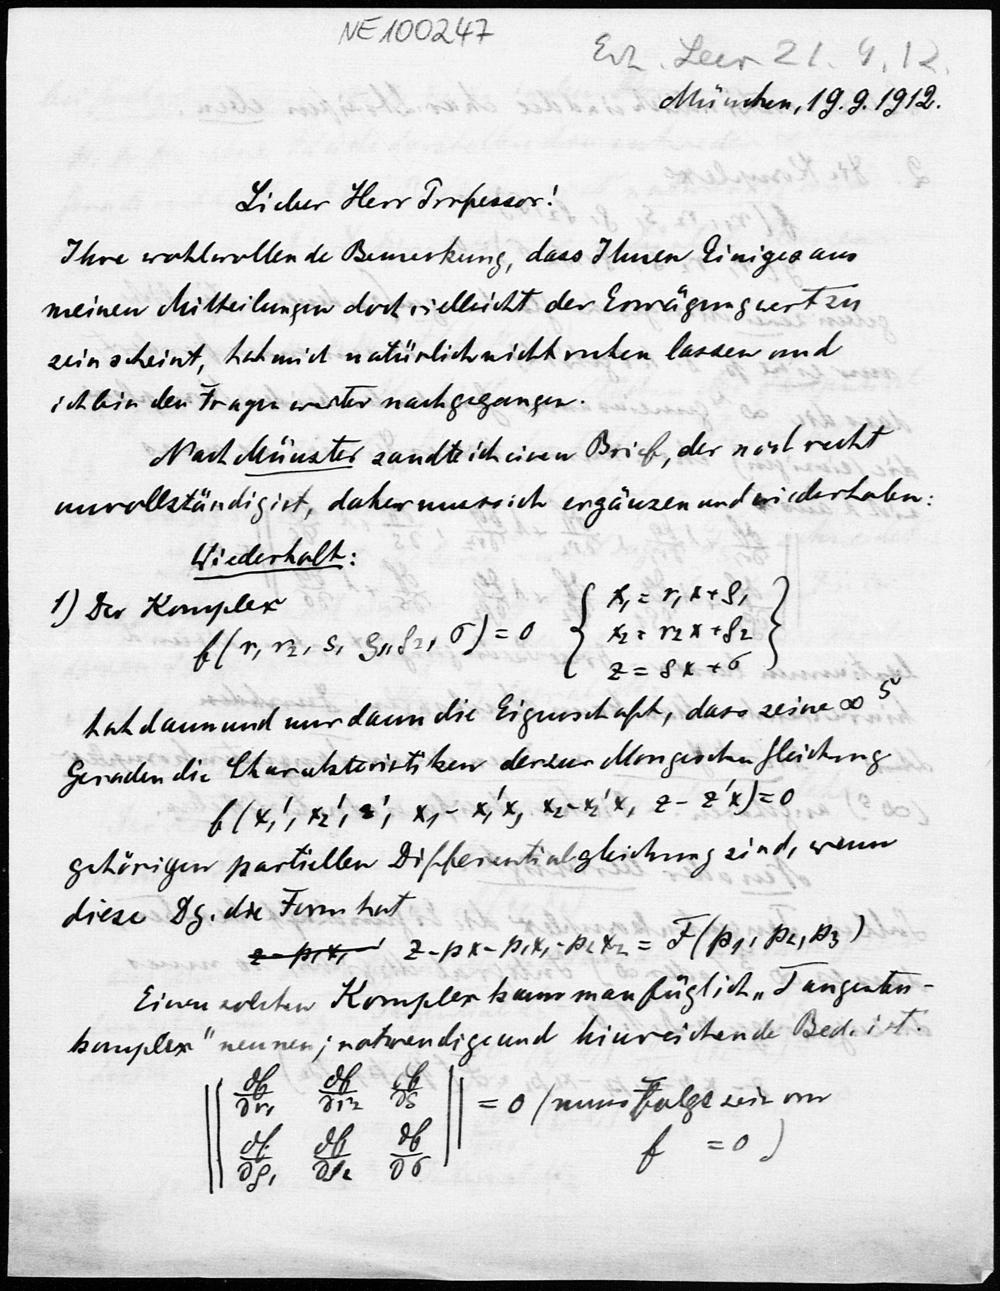 NE100247
21. 9. 12.
München, 19.9.1912.
Lieber Herr Professor!
Ihre wohlwollende Bemerkung, dass Ihnen Einiges aus
meinen Mitteilungen doch vielleicht der Erwägung wert zu
sein scheint, hat mich natürlich nicht ruhen lassen und
ich bin den Fragen weiter nachgegangen.
Nach Münster sandte ich einen Brief, der noch recht
unvollständig ist, daher muss ich ergänzen und wiederholen:
Wiederholt:
1) Der Komplex
f(r₁ r₂, s, ρ₁, ρ₂, σ) = 0 { x₁ = r₁x + ρ₁
x₂ = r₂x + ρ₂
z = sx + σ }
hat dann und nur dann die Eigenschaft, dass seine ∞⁵
Geraden die Charakteristiken der zur Mongeschen Gleichung
f(x₁', x₂', z', x₁ - x₁'x, x₂ - x₂'x, z - z'x) = 0
gehörigen partiellen Differentialgleichung sind, wenn
diese Dg. die Form hat
z - p₁x₁ z - px - p₁x₁ - p₂x₂ = F(p₁, p₂, p₃)
Einen solchen Komplex kann man füglich „Tangenten-
komplex" nennen; notwendige und hinreichende Bed. ist.
|| ∂f/∂r₁ ∂f/∂r₂ ∂f/∂s || = 0 (muss Folge sein von
∂f/∂ρ₁ ∂f/∂ρ₂ ∂f/∂σ f = 0)